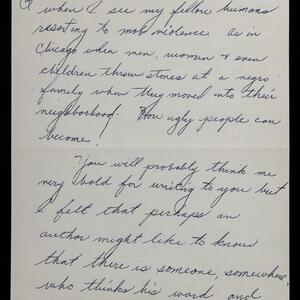 when I see my fellow humans
resorting to mob violence as in
Chicago when men, women & even
children threw stones at a negro
family when they moved into their
neighborhood. How ugly people can
become.
You will probably think me
very bold for writing to you but
I felt that perhaps an
author might like to know
that there is someone, somewhere,
who thinks his word and